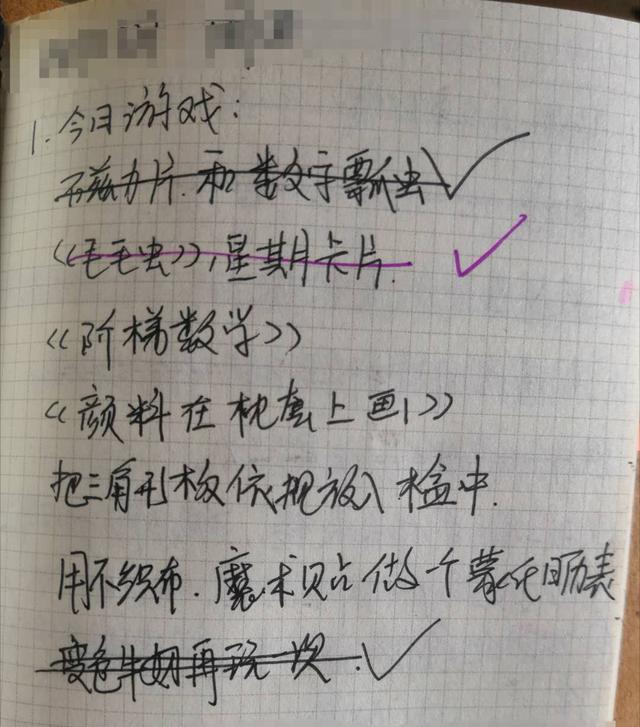 1. 今日游戏:
磁力片.和数字瓢虫
《毛毛虫》,星期卡片.
《阶梯数学》
《颜料在枕套上画》
把三角形板依规放入格盒中.
用不织布.魔术贴做个蒙氏日历表
变色牛奶再玩一次.